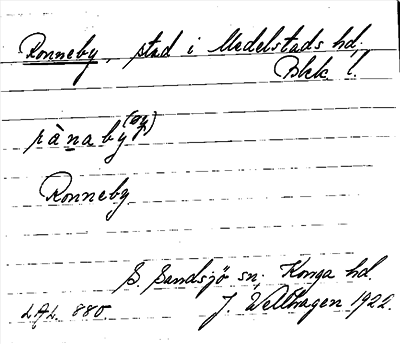 Ronneby, stad i Medelstads hd,
Blek. l.
rànaby (øy)
Ronneby
S. Sandsjö sn, Konga hd
LAL. 880. J. Wellhagen 1922.